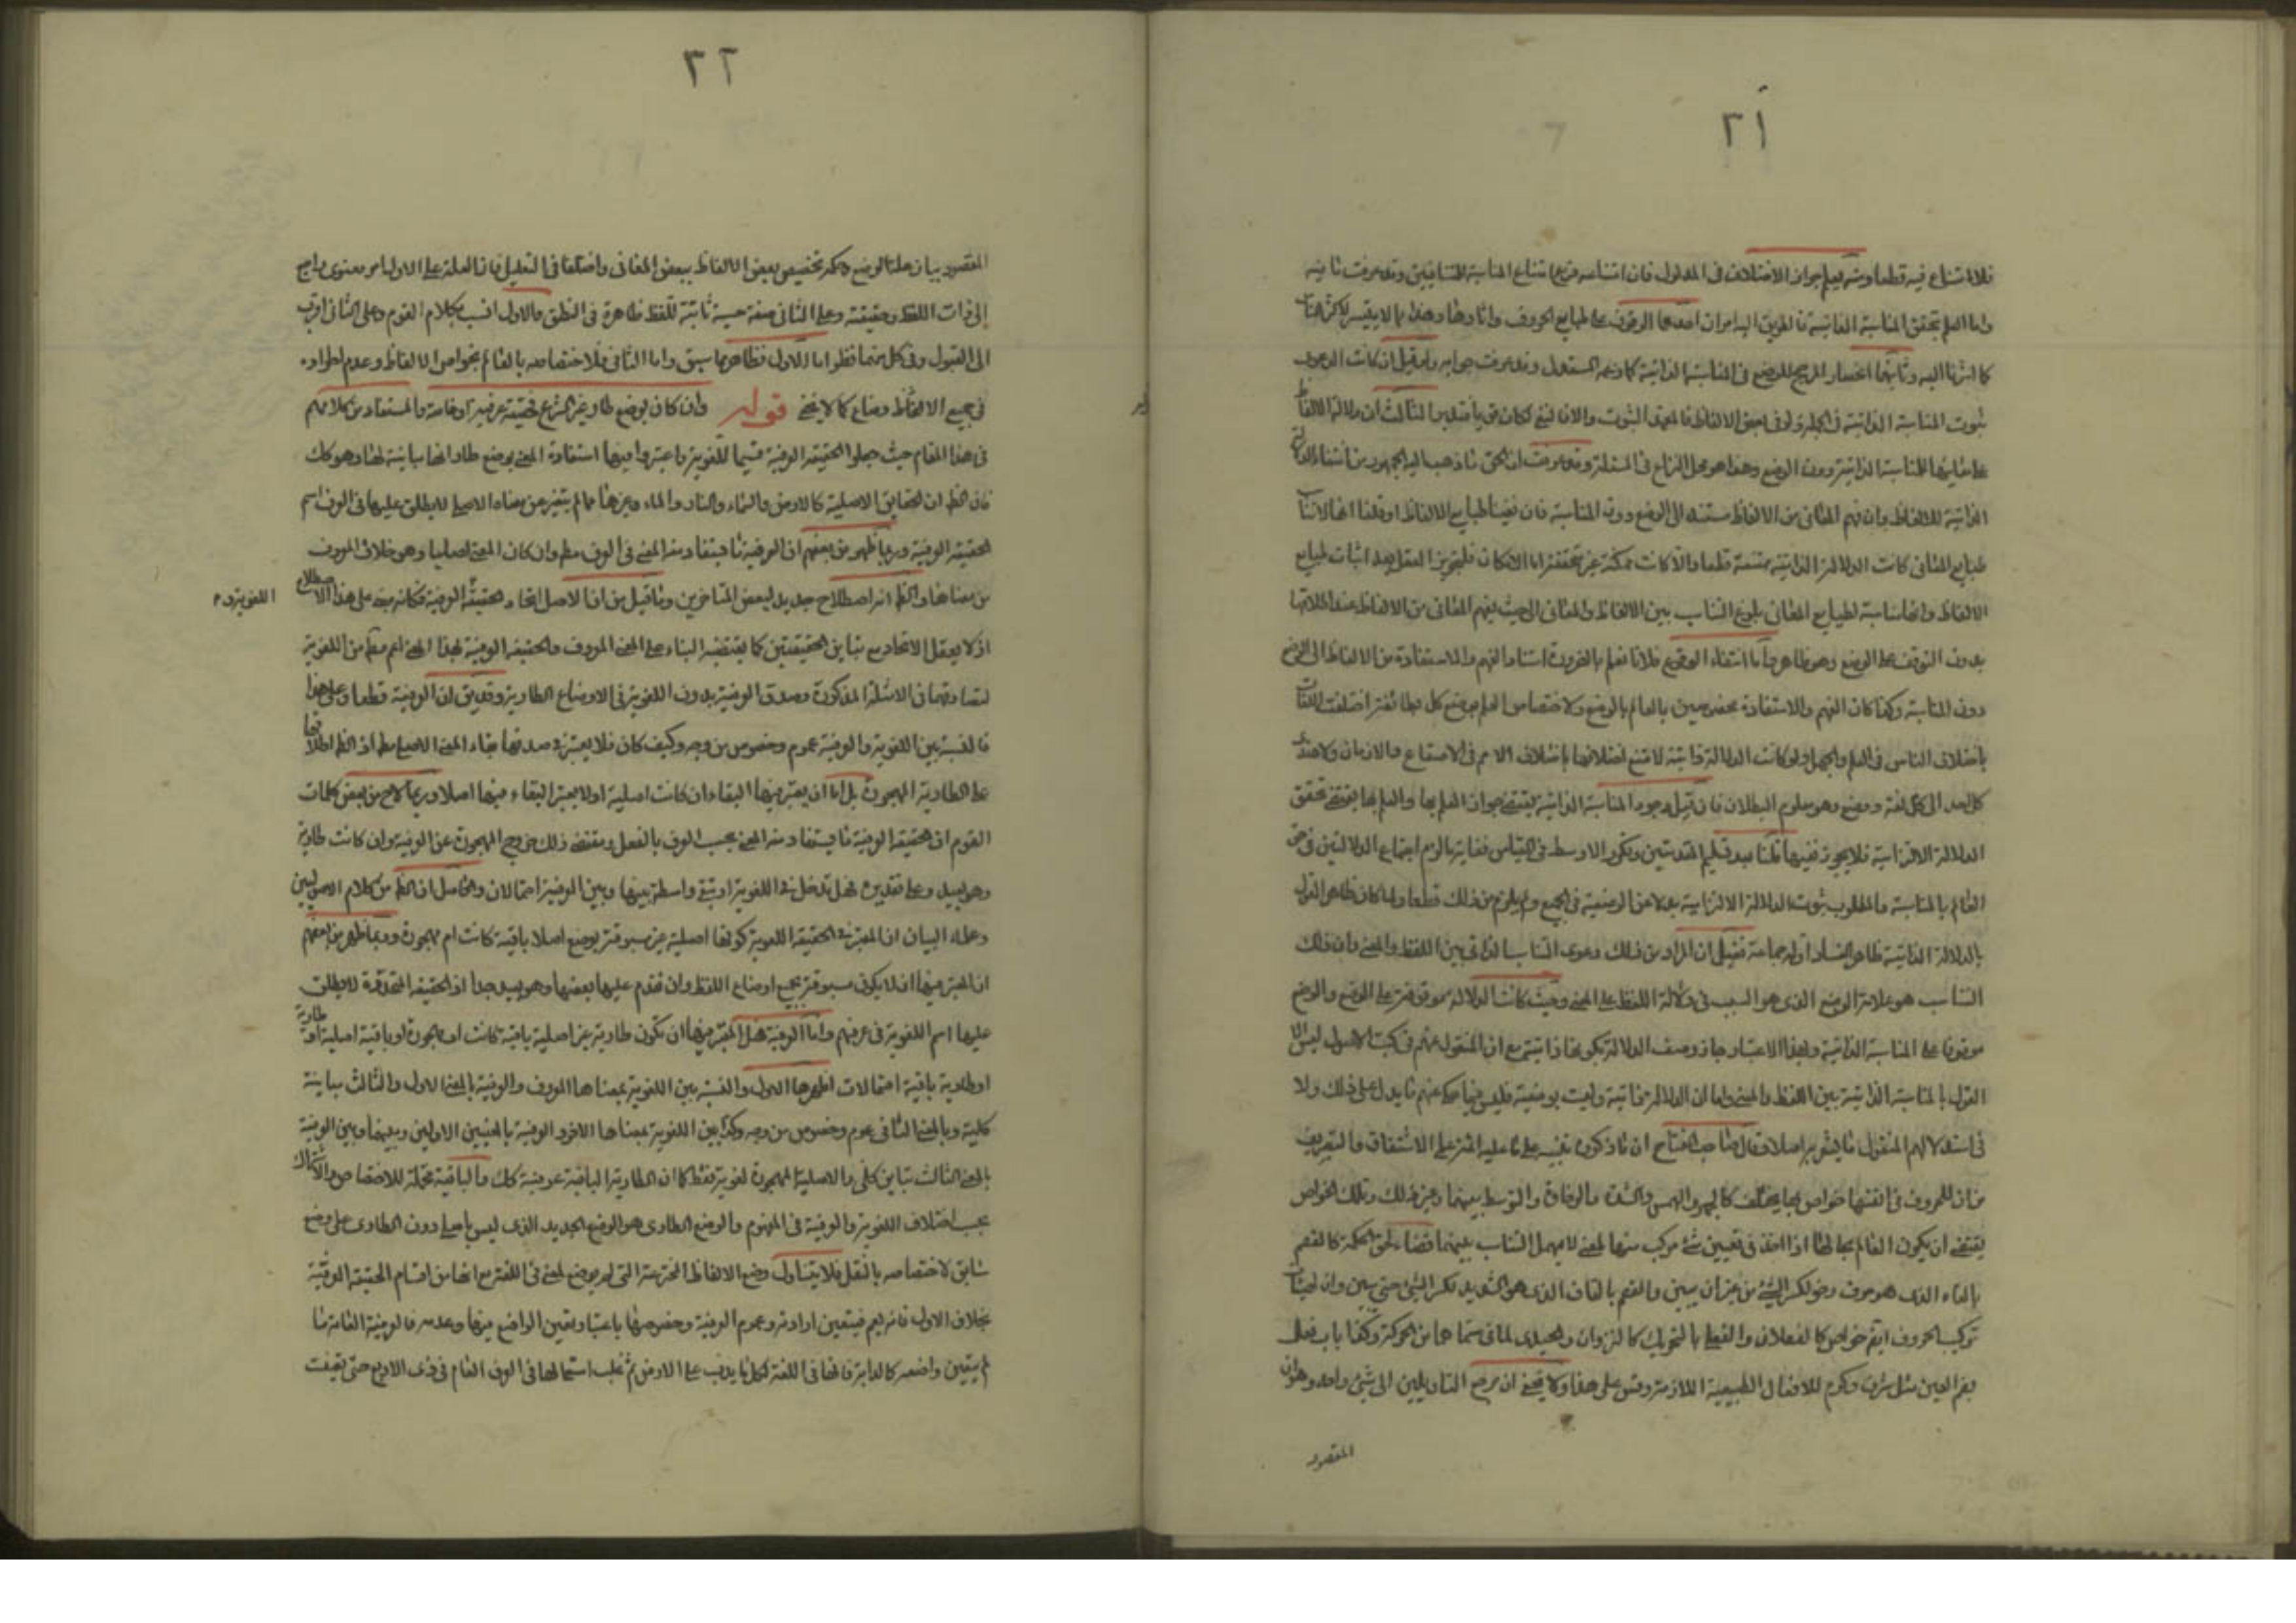 ٢١
فلا امتناع فيه قطعا ومنه يعلم جواز الاختلاف في المدلول فان امتناعه فرع امتناع المناسبة للمتنافيين وقد عرفت ما فيه
واما العلم بتحقق المناسبة الذاتية فالطريق اليه امران احدهما الوقوف على طبايع الحروف واثارها وهذا مما لا يتيسر لاكثر الناس
كما اشرنا اليه وثانيهما انحصار المرجح للوضع في المناسبة الذاتية كما زعمه المستدل وقد عرفت جوابه ولو قيل ان كانت الدعوى
ثبوت المناسبة الذاتية في الجملة ولو في بعض الالفاظ فالمعهود الثبوت والا فالنفي لكان قريبا الثالث ان دلالة الالفاظ
على معانيها للمناسبة الذاتية دون الوضع وهذا هو محل النزاع في المسئلة وقد عرفت ان الحق ما ذهب اليه الجمهور من انتفاء الدلالة
الذاتية للالفاظ وان فهم المعاني من الالفاظ مستند الى الوضع دون المناسبة فان نفينا طبايع الالفاظ او قلنا انها لا تناسب
طبايع المعاني كانت الدلالة الذاتية ممتنعة قطعا والا كانت ممكنة غير متحققة اما الامكان فلتجويز العقل بعد اثبات طبايع
الالفاظ وانها مناسبة لطبايع المعاني بلوغ التناسب بين الالفاظ والمعاني الى حيث يفهم المعاني من الالفاظ عند اطلاقها
بدون التوقف على الوضع وهو ظاهر واما انتفاء الوقوع فلانا نعلم بالضرورة استناد الفهم والاستفادة من الالفاظ الى الوضع
دون المناسبة ولذا كان الفهم والاستفادة مخصوصين بالعالم بالوضع ولاختصاص العلم بوضع كل بطائفة اختلفت اللغات
باختلاف الناس في العلم والجهل ولو كانت الدلالة ذاتية لامتنع اختلافها باختلاف الامم في الاصقاع والازمان ولاهتدى
كل احد الى كل لغة ووضع وهو معلوم البطلان فان قيل وجود المناسبة الذاتية يقتضي جواز العلم بها والعلم بها يقتضي تحقق
الدلالة الالتزامية فلا يجوز نفيها قلنا بعد تسليم المقدمتين وتكرر الاوسط في القياس فغاية ما يلزم اجتماع الدلالتين في حق
العالم بالمناسبة والمطلوب ثبوت الدلالة الالتزامية بدلا عن الوضعية في الجميع ولم يلزم من ذلك قطعا ولما كان ظاهر القول
بالدلالة الذاتية ظاهر الفساد اوله جماعة فقيل ان المراد من ذلك دعوى التناسب الذاتي بين اللفظ والمعنى وان ذلك
التناسب هو علة الوضع الذي هو السبب في دلالة اللفظ على المعنى وحيث كانت الدلالة موقوفة على الوضع والوضع
موقوفا على المناسبة الذاتية ولهذا الاعتبار جاز وصف الدلالة بكونها ذاتية مع ان المنقول عنهم في كتب الاصول ليس الا
القول بالمناسبة الذاتية بين اللفظ والمعنى واما ان الدلالة ذاتية وليست بوضعية فليس فيما حكي عنهم ما يدل على ذلك ولا
في استدلالهم المنقول ما يشعر به اصلا وقال صاحب المفتاح ان ما ذكروه تنبيه على ما عليه ائمة علمي الاشتقاق والتصريف
من ان للحروف في انفسها خواص بها يختلف كالجهر والهمس والشدة والرخاوة والتوسط بينهما وغير ذلك وتلك الخواص
يقتضي ان يكون العالم بها اذا اخذ في تعيين شيء مركب منها لمعنى لا يهمل التناسب بينهما قضاء لحق الحكمة كالفصم
بالفاء الذي هو حرف رخو لكسر الشيء من غير ان يبين والقصم بالقاف الذي هو الشديد لكسر الشيء حتى يبين وان لهيئات
تركيب الحروف ايضا خواص كالفعلان والفعلى بالتحريك كالنزوان والحيدى لما في مسماهما من الحركة وكذا باب فعل
بضم العين مثل شرف وكرم للافعال الطبيعية اللازمة وقس على هذا ولا يخفى ان مرجع التاويلين الى شيء واحد وهو ان
المقصود
٢٢
المقصود بيان علة الوضع وحكمة تخصيص بعض الالفاظ ببعض المعاني واختلفا في التعليل فان العلة على الاول امر معنوي راجع
الى ذات اللفظ وحقيقته وعلى الثاني صفة حسية ثابتة للفظ ظاهرة في النطق والاول انسب بكلام القوم وعلى الثاني اقرب
الى القبول وفي كل منهما نظر اما الاول فظاهر مما سبق واما الثاني فلاختصاصه بالعالم بخواص الالفاظ وعدم اطراده
في جميع الالفاظ والاوضاع كما لا يخفى قوله وان كان بوضع طار غير الشرع فحقيقة عرفية او خاصة والمستفاد من كلامهم
في هذا المقام حيث جعلوا الحقيقة العرفية قسيما للغوية واعتبروا فيها استفادة المعنى بوضع طار انها مباينة لها وهو كذلك
فان الظ ان الحقايق الاصلية كالارض والسماء والنار والماء وغيرها مما لم يتغير عن معناه الاصلي لا يطلق عليها في العرف اسم
الحقيقة العرفية وربما ظهر من بعضهم ان العرفية ما يستفاد منه المعنى في العرف مطلقا وان كان المعنى اصليا وهو خلاف المعروف
من معناها والظ انه اصطلاح جديد لبعض المتاخرين وما قيل من ان الاصل اتحاد الحقيقة العرفية فكانه مبني على هذا الاصطلاح
اللغوية و م
اذ لا يعقل الاتحاد مع تباين الحقيقتين كما يقتضيه البناء على المعنى المعروف والحقيقة العرفية بهذا المعنى اعم مطلقا من اللغوية
لتصادقهما في الامثلة المذكورة وصدق العرفية بدون اللغوية في الاوضاع الطارية وقد يق ان العرفية قطعا وعلى هذا
فالنسبة بين اللغوية والعرفية عموم وخصوص من وجه وكيف كان فلا يعتبر في صدقها بقاء المعنى الاصلي مطلقا اذ الظ اطلاقها
على الطارية المهجورة بل اما ان يعتبر فيها البقاء ان كانت اصلية او لا يعتبر البقاء فيها اصلا وربما لاح من بعض كلمات
القوم ان الحقيقة العرفية ما يستفاد منه المعنى بحسب العرف بالفعل ومقتضى ذلك خروج المهجورة عن العرفية وان كانت طارية
وهو بعيد وعلى تقديره فهل تدخل في اللغوية او تبقى واسطة بينها وبين العرفية احتمالان والحاصل ان الظ من كلام الاصوليين
وعلماء البيان ان المعتبر في الحقيقة اللغوية كونها اصلية غير مسبوقة بوضع اصلا باقية كانت ام مهجورة وربما ظهر من بعضهم
ان المعتبر فيها ان لا يكون مسبوقة بجميع اوضاع اللفظ وان تقدم عليها بعضها وهو بعيد جدا اذ الحقيقة المتجددة لا يطلق
عليها اسم اللغوية في عرفهم واما العرفية فهل المعتبر فيها ان تكون طارية غير اصلية باقية كانت او مهجورة او باقية اصلية او طارية
او طارية باقية احتمالات اظهرها الاول والنسبة بين اللغوية بمعناها المعروف والعرفية بالمعنى الاول والثالث مباينة
كلية وبالمعنى الثاني عموم وخصوص من وجه وكذا بين اللغوية بمعناها الاخر والعرفية بالمعنيين الاولين وبينها وبين العرفية
بالمعنى الثالث تباين كلي والاصلية المهجورة لغوية فقط كما ان الطارية الباقية عرفية كذلك والباقية محتملة للاختصاص والاشتراك
بحسب اختلاف اللغوية والعرفية في المفهوم والوضع الطارى هو الوضع الجديد الذي ليس باصلي دون الطارى على وضع
سابق لاختصاصه بالنقل فلا يتناول وضع الالفاظ المخترعة التي لم يوضع لمعنى في اللغة مع انها من اقسام الحقيقة العرفية
بخلاف الاول فانه يعم فيتعين ارادته وعموم العرفية وخصوصها باعتبار تعين الواضع فيها وعدمه فالعرفية العامة ما
لم يتعين واضعه كالدابة فانها في اللغة لكل ما يدب على الارض ثم غلب استعمالها في العرف العام في ذي الاربع حتى تعينت